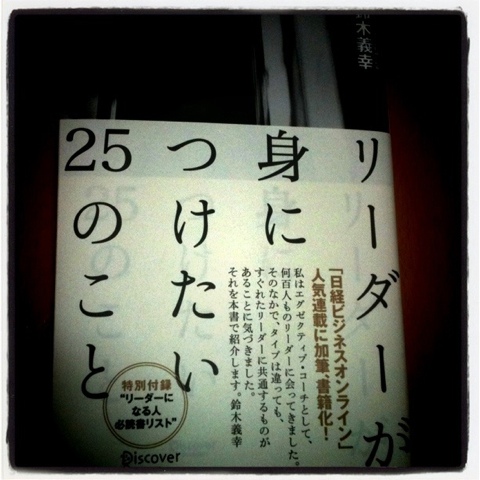 鈴木義幸
リーダーが
身に
つけたい
25のこと
「日経ビジネスオンライン」
人気連載に加筆、書籍化!
私はエグゼクティブ・コーチとして、
何百人ものリーダーに会ってきました。
そのなかで、タイプは違っても、
すぐれたリーダーに共通するものが
あることに気づきました。
それを本書で紹介します。鈴木義幸
特別付録
“リーダーに
なる人
必読書リスト”
Discover